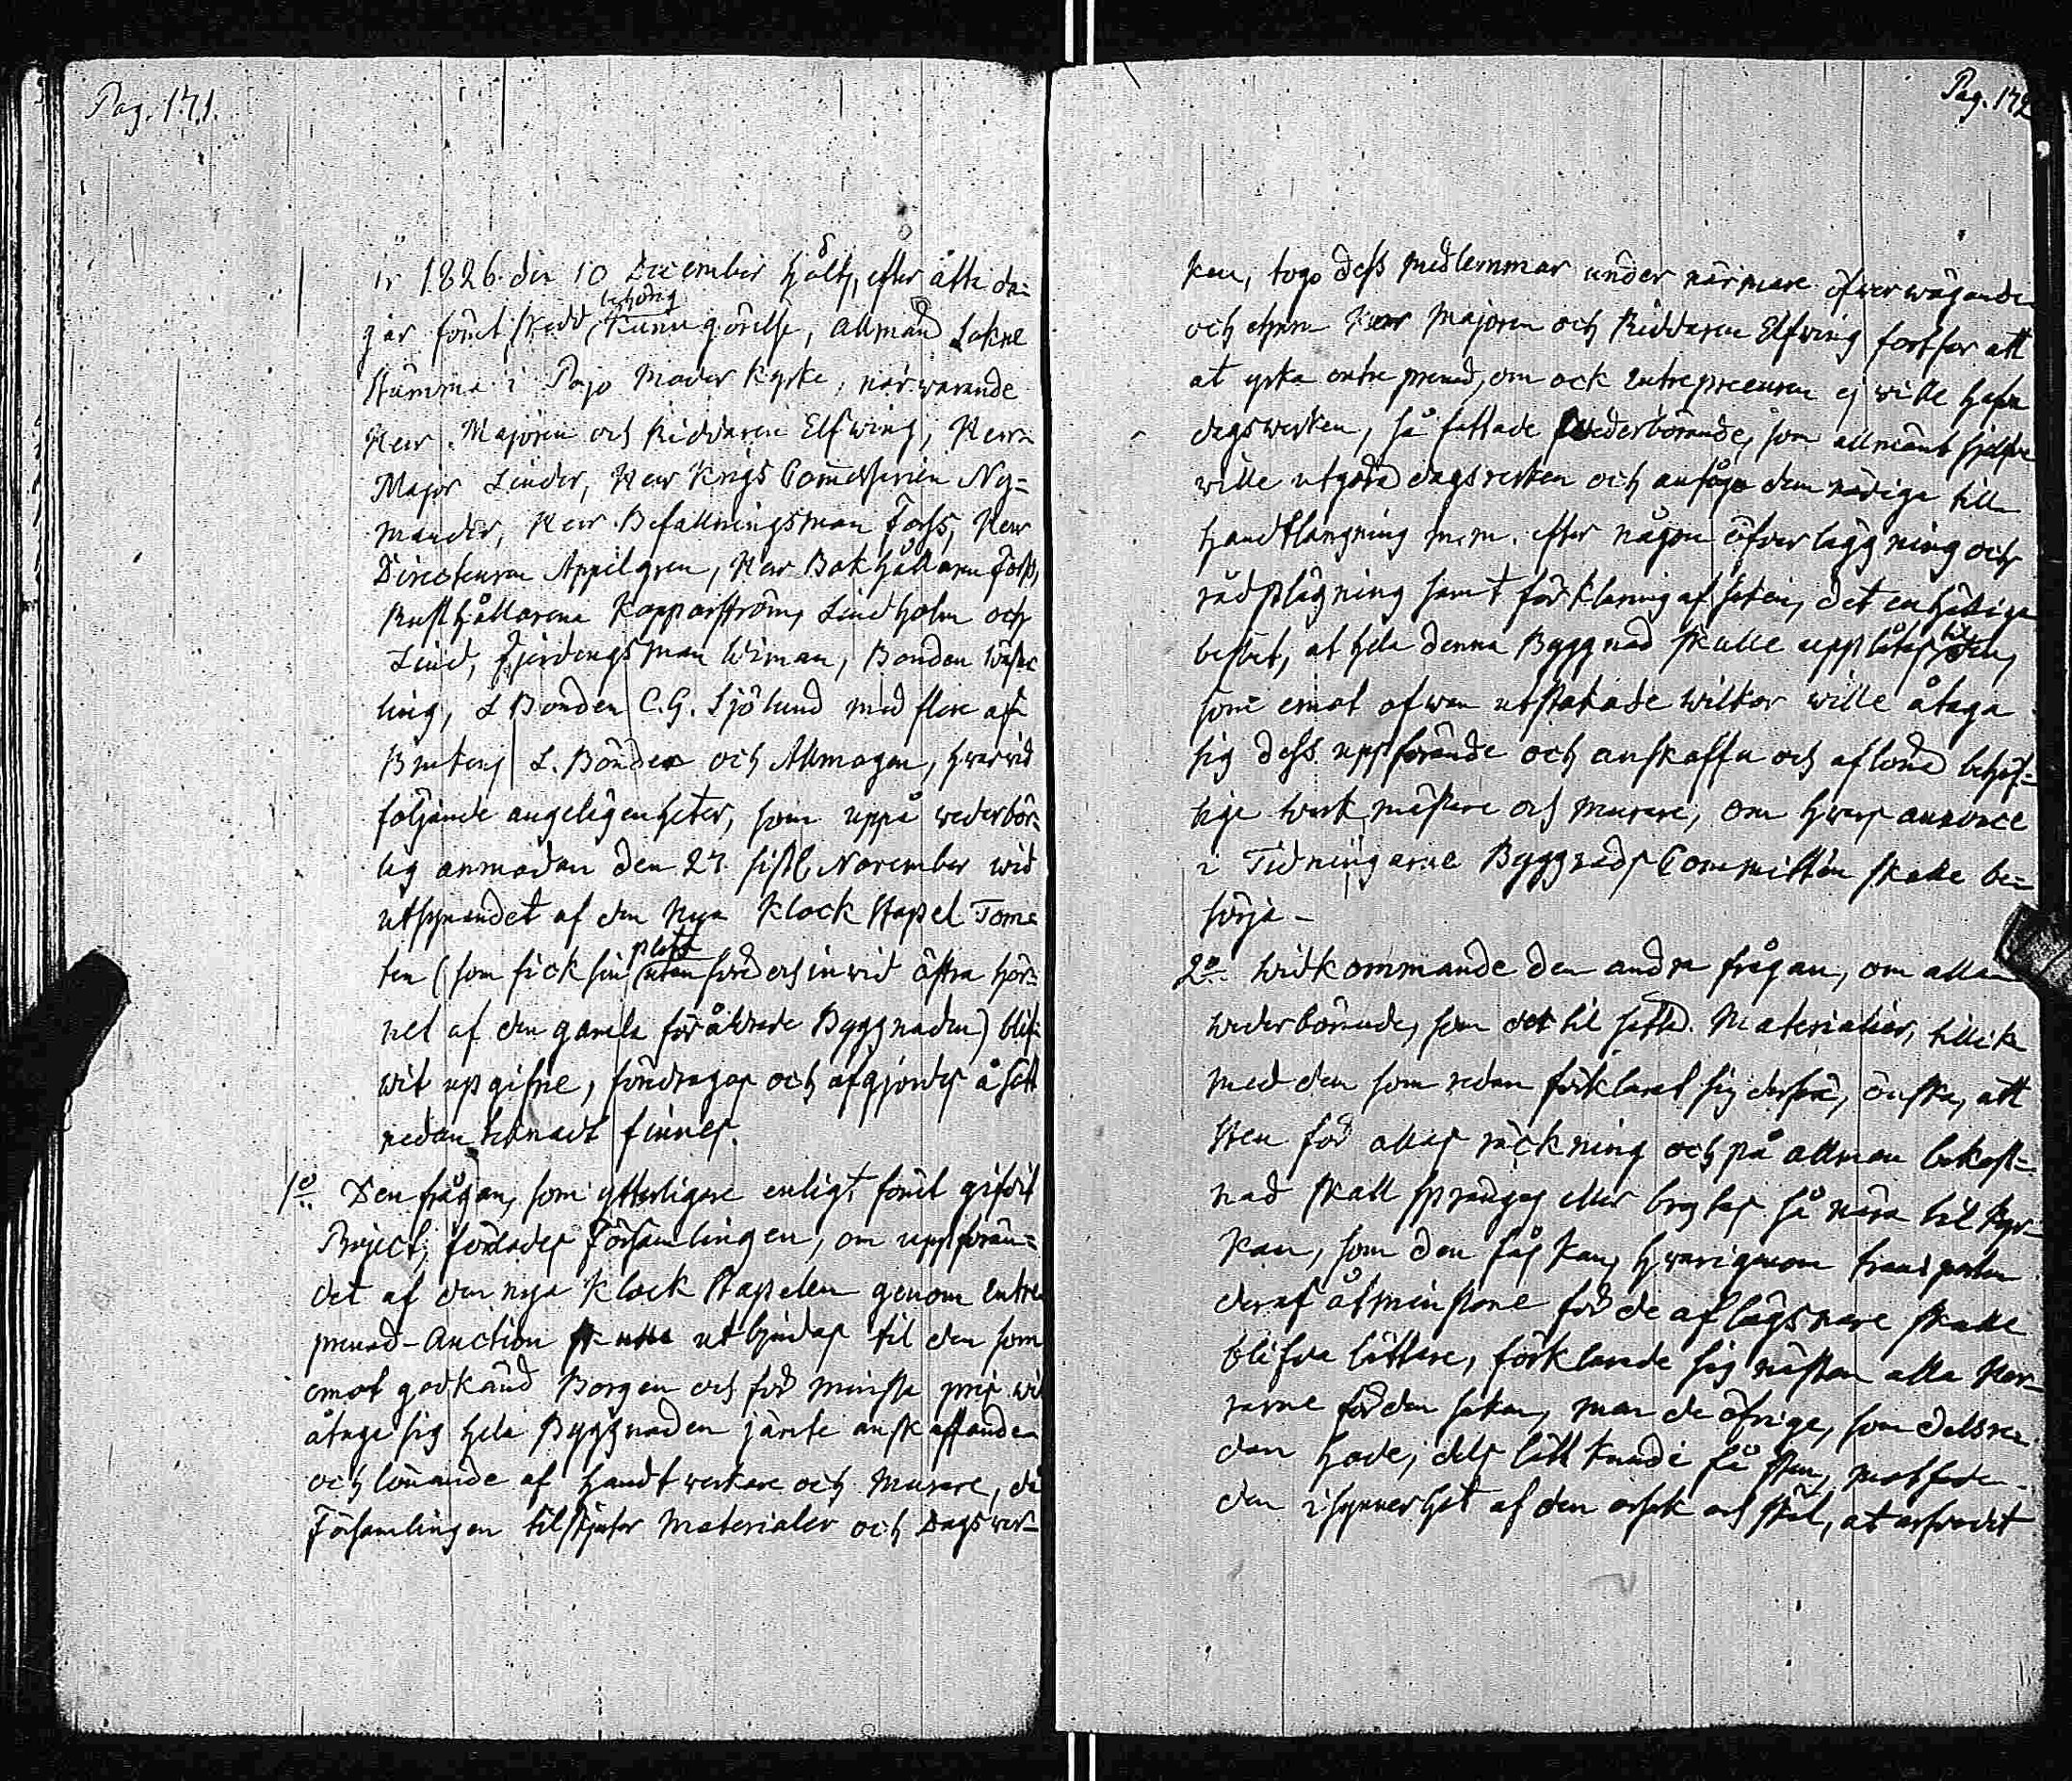 Pag. 171.
År 1826 den 10 December hölts, efter åtta da-
gar förut skedd behörig kunngörelse, allmän Sokne
Stämma i Pojo Moder Kyrka, närwarande
Herr Majoren och Riddaren Elfwing, Herr
Major Linder, Herr Krigs Commissarien Ny-
mander, Herr Befallningsman Forss, Herr
Directeuren Appelgren, Herr Bokhållaren Forss,
Rusthållarena Kopparström, Lindholm och
Lind, Fjerdingsman Wiman, Bonden
ling, L Bonden C. G. Sjölund med flere af
Brukens L. Bönder och Allmogen, hwarwid
följande angelägenheter, som uppå wederbör-
lig anmodan den 27 sistl. November wid
utsynandet af den nya Klock Stapel Tom-
ten (som fick sin plats utan före och inwid östra hör-
net af den gamla föråldrade Byggnaden) blif-
wit uppgifne, föredrogos och afgjordes å sätt
nedan teknadt finnes.
1o Den frågan, som ytterligare enligt förut gifvit
Project, förelades Församlingen, om uppföran-
det af den nya Klock Stapelen genom entre
prenad-Auction utbjudas til den som
emot godkänd Borgen och för minsta pris wil
åtaga sig hela Byggnaden jämte anskaffande
och lönande af Handtwerkare och Murare, då
Församlingen tilskjuter Materialer och Dagswer-
Pag. 172
ken, togo dess medlemmar under närmare öfwerwägande
och ehuru Herr Majoren och Riddaren Elfwing fortfor att
at yrka entreprenad, om ock entrepreneuren ej wille hafva
dagswerken, så fattade wederbörande, som allmänt sjelfve
wille utgöra dagswerken och ansågo dem nödiga till
handtlangning m.m. efter någon öfverläggning och
rådplägning samt förklaring af saken, det enhälliga
beslut, at hela denna Byggnad skulle upplåtas til den,
som emot ofwan utstakade wilkor wille åtaga
sig dess uppförande och anskaffa och aflöna behöf-
lige werkmästare och murare, om hwars annonce
i Tidningarne Byggnads Committén skulle be-
sörja -
2o Widkommande den andra frågan, om alla
wederbörande, som det til hette Materialier, tillika
med den som redan förklarat sig derföre, önska, att
sten för allas räckning och på allmän bekost-
nad skall sprängas eller brytas så nära til Kyr-
kan, som den fås kan, hwarigenom transporten
deraf åtminstone för de aflägsnare skulle
blifva lättare, förklarade sig nästan alla Her-
rarne för den saken, men de öfrige, som dels re-
dan hade, dels lätt kunde få sten, motsade
den i synnerhet af den orsak och skäl, at arfvodet